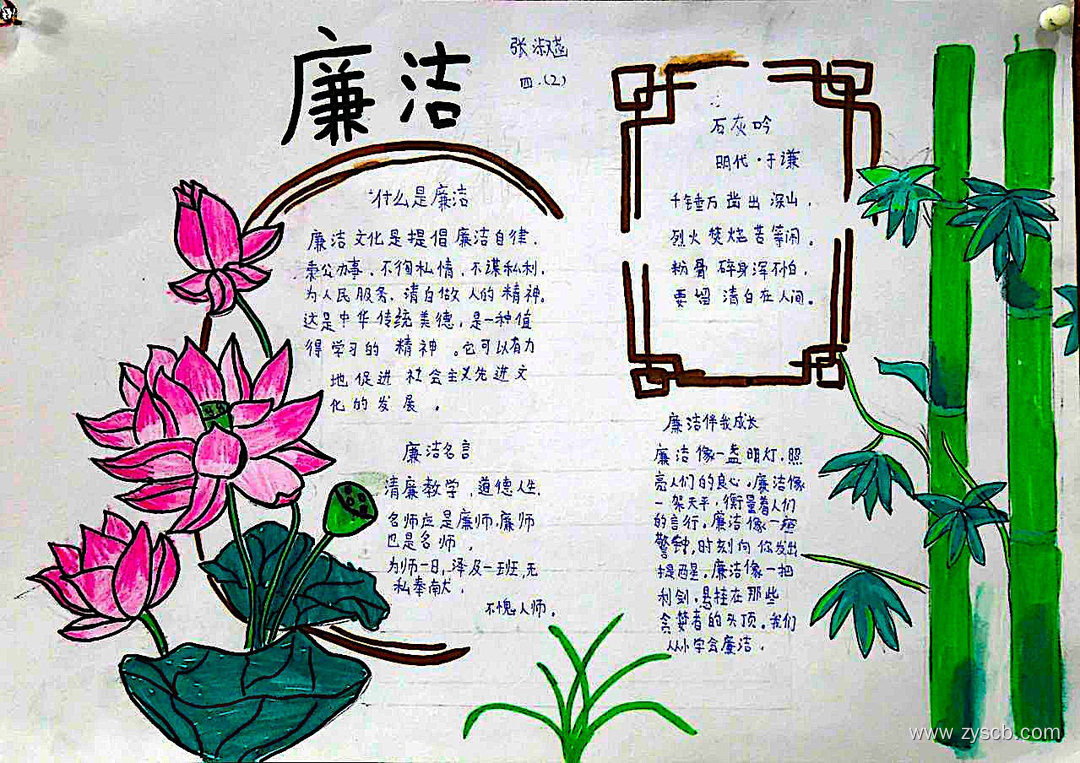 廉洁
张淑
四.(2)
什么是廉洁
廉洁文化是提倡廉洁自律,
秉公办事,不徇私情,不谋私利,
为人民服务,清白做人的精神。
这是中华传统美德,是一种值
得学习的精神。它可以有力
地促进社会主义先进文
化的发展。
廉洁名言
清廉教学,道德人生,
名师应是廉师,廉师
也是名师,
为师一日,泽及一班,无
私奉献,
不愧人师。
石灰吟
明代·于谦
千锤万凿出深山,
烈火焚焰苦等闲。
粉骨碎身浑不怕,
要留清白在人间。
廉洁伴我成长
廉洁像一盏明灯,照
亮人们的良心。廉洁像
一架天平,衡量着人们
的言行。廉洁像一座
警钟,时刻向你发出
提醒。廉洁像一把
利剑,悬挂在那些
贪婪者的头顶。我们
从小学会廉洁。
www.zyscb.com